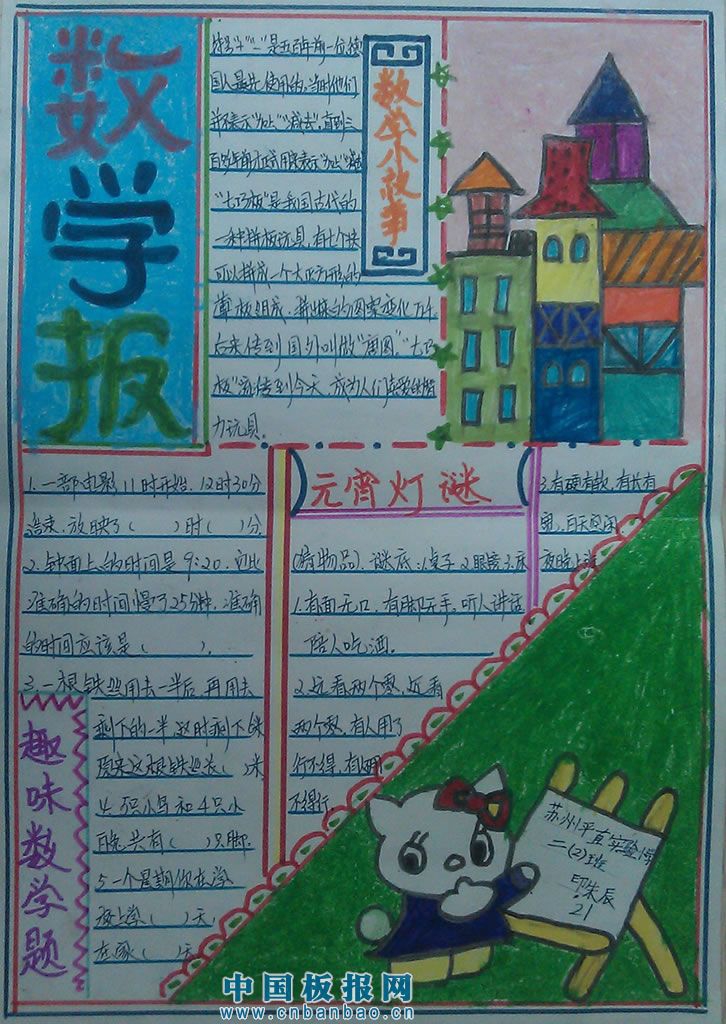 数学报
数学小故事
符号"+""-"是五百年前一位德
国人最先使用的,当时他们
并不表示"加上""减去",直到三
百多年前才正式用来表示"加上""减去"
"七巧板"是我国古代的
一种拼板玩具,有七个块
可以拼成一个大正方形的
薄板组成,拼出来的图案变化万千,
后来传到国外叫做"唐图"."七巧
板"流传到今天,成为人们喜爱的智
力玩具.
1.一部电影11时开始,12时30分
结束,放映了( )时( )分.
2.钟面上的时间是9:20,它比
准确的时间慢了25分钟,准确
的时间应该是( ).
3.一根铁丝用去一半后,再用去
剩下的一半,这时剩下
原来这根铁丝长( )米
4. 5只小鸟和4只小
兔共有( )只脚.
5.一个星期你在学
校上学( )天,
在家( )天
趣味数学题
元宵灯谜
(猜物品).谜底:1.桌子 2.眼镜 3.床
1.有面无口,有脚无手,听人讲话
陪人吃酒.
2.远看两个零,近看
两个零,有人用了
行不得,有人不用
不得行
3.有硬有软,有长有
宽,白天空闲
夜晚上班
苏州平直实验
二(2)班
印朱辰
21
中国板报网
www.cnbanbao.cn